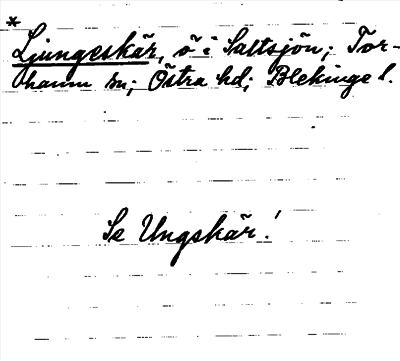 *
Ljungeskär, ö i Saltsjön; Tor-
hamn sn; Östra hd; Blekinge l.
Se Ungskär!